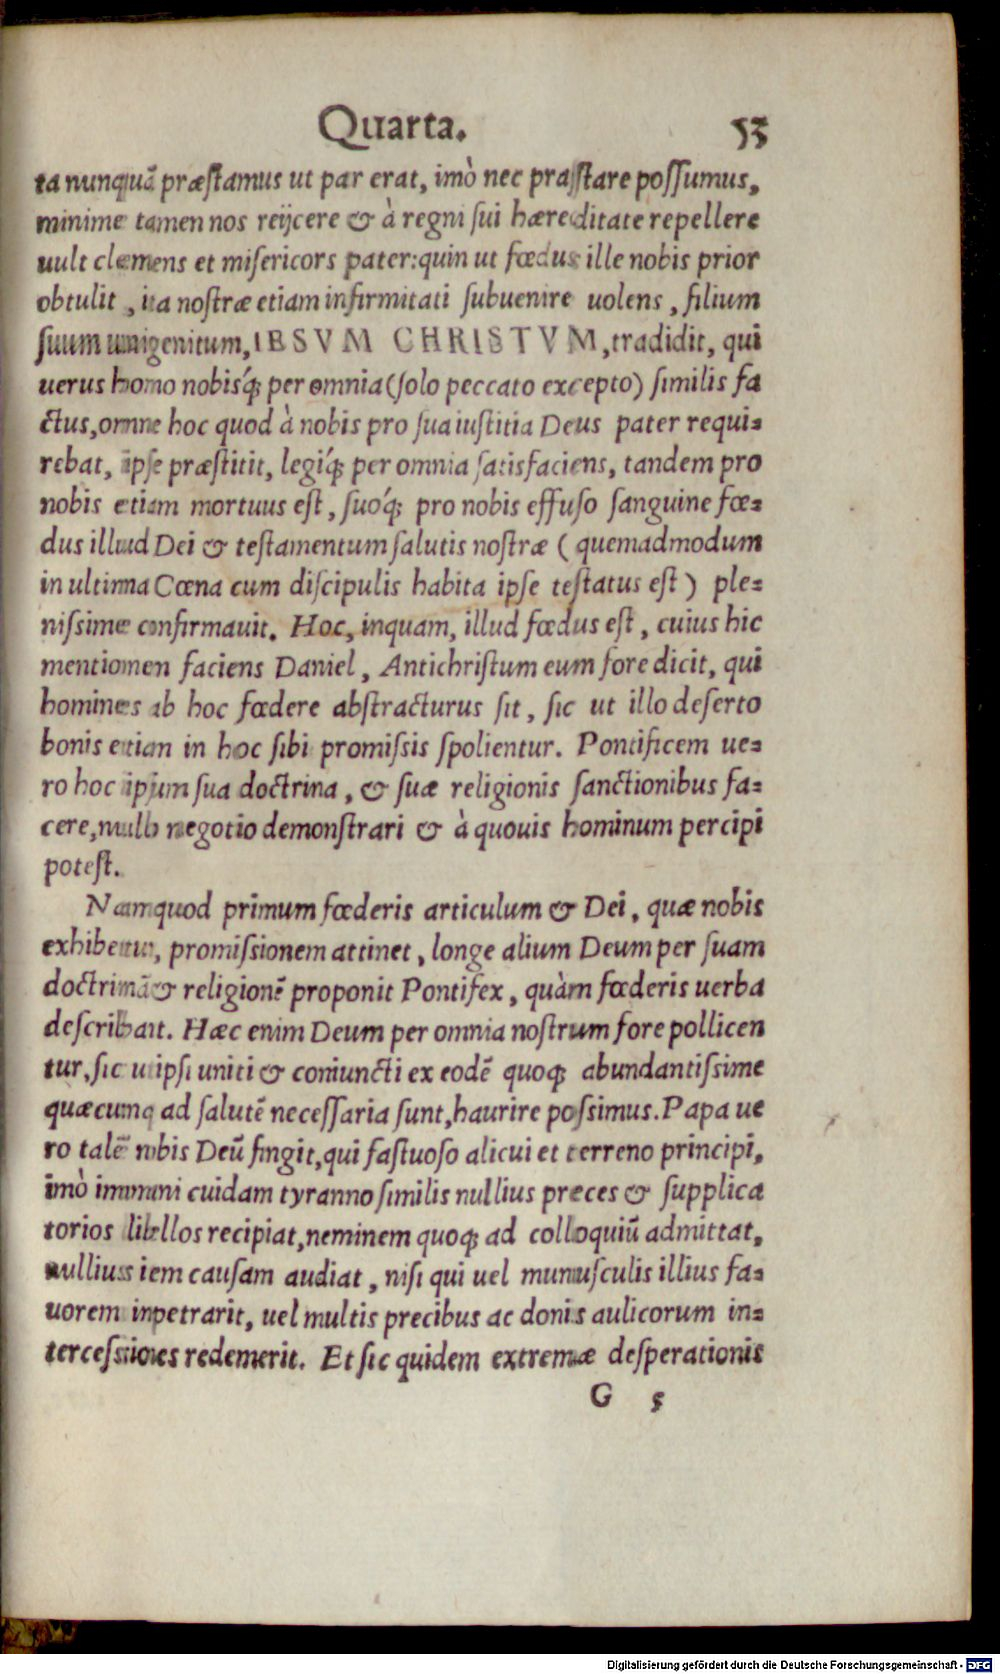 Quarta. 53
ta nunquã præstamus ut par erat, imò nec præstare possumus,
minime tamen nos reijcere & à regni sui hæreditate repellere
uult clemens et misericors pater: quin ut fœdus ille nobis prior
obtulit, ita nostræ etiam infirmitati subuenire uolens, filium
suum unigenitum, IESVM CHRISTVM, tradidit, qui
uerus homo nobisq́; per omnia (solo peccato excepto) similis fa
ctus, omne hoc quod à nobis pro sua iustitia Deus pater requi=
rebat, ipse præstitit, legiq́; per omnia satisfaciens, tandem pro
nobis etiam mortuus est, suoq́; pro nobis effuso sanguine fœ=
dus illud Dei & testamentum salutis nostræ (quemadmodum
in ultima Cœna cum discipulis habita ipse testatus est) ple=
nissime confirmauit. Hoc, inquam, illud fœdus est, cuius hic
mentionem faciens Daniel, Antichristum eum fore dicit, qui
homines ab hoc fœdere abstracturus sit, sic ut illo deserto
bonis etiam in hoc sibi promissis spolientur. Pontificem ue=
ro hoc ipsum sua doctrina, & suæ religionis sanctionibus fa=
cere, nullo negotio demonstrari & à quouis hominum percipi
potest.
Nam quod primum fœderis articulum & Dei, quæ nobis
exhibetur, promissionem attinet, longe alium Deum per suam
doctrinã & religionẽ proponit Pontifex, quàm fœderis uerba
describant. Hæc enim Deum per omnia nostrum fore pollicen
tur, sic ut ipsi uniti & coniuncti ex eodẽ quoq; abundantissime
quæcunq; ad salutẽ necessaria sunt, haurire possimus. Papa ue
ro talẽ nobis Deũ fingit, qui fastuoso alicui et terreno principi,
imò immani cuidam tyranno similis nullius preces & supplica
torios libellos recipiat, neminem quoq; ad colloquiũ admittat,
nullius item causam audiat, nisi qui uel munusculis illius fa=
uorem impetrarit, uel multis precibus ac donis aulicorum in=
tercessiones redemerit. Et sic quidem extremæ desperationis
G 5
Digitalisierung gefördert durch die Deutsche Forschungsgemeinschaft - DFG